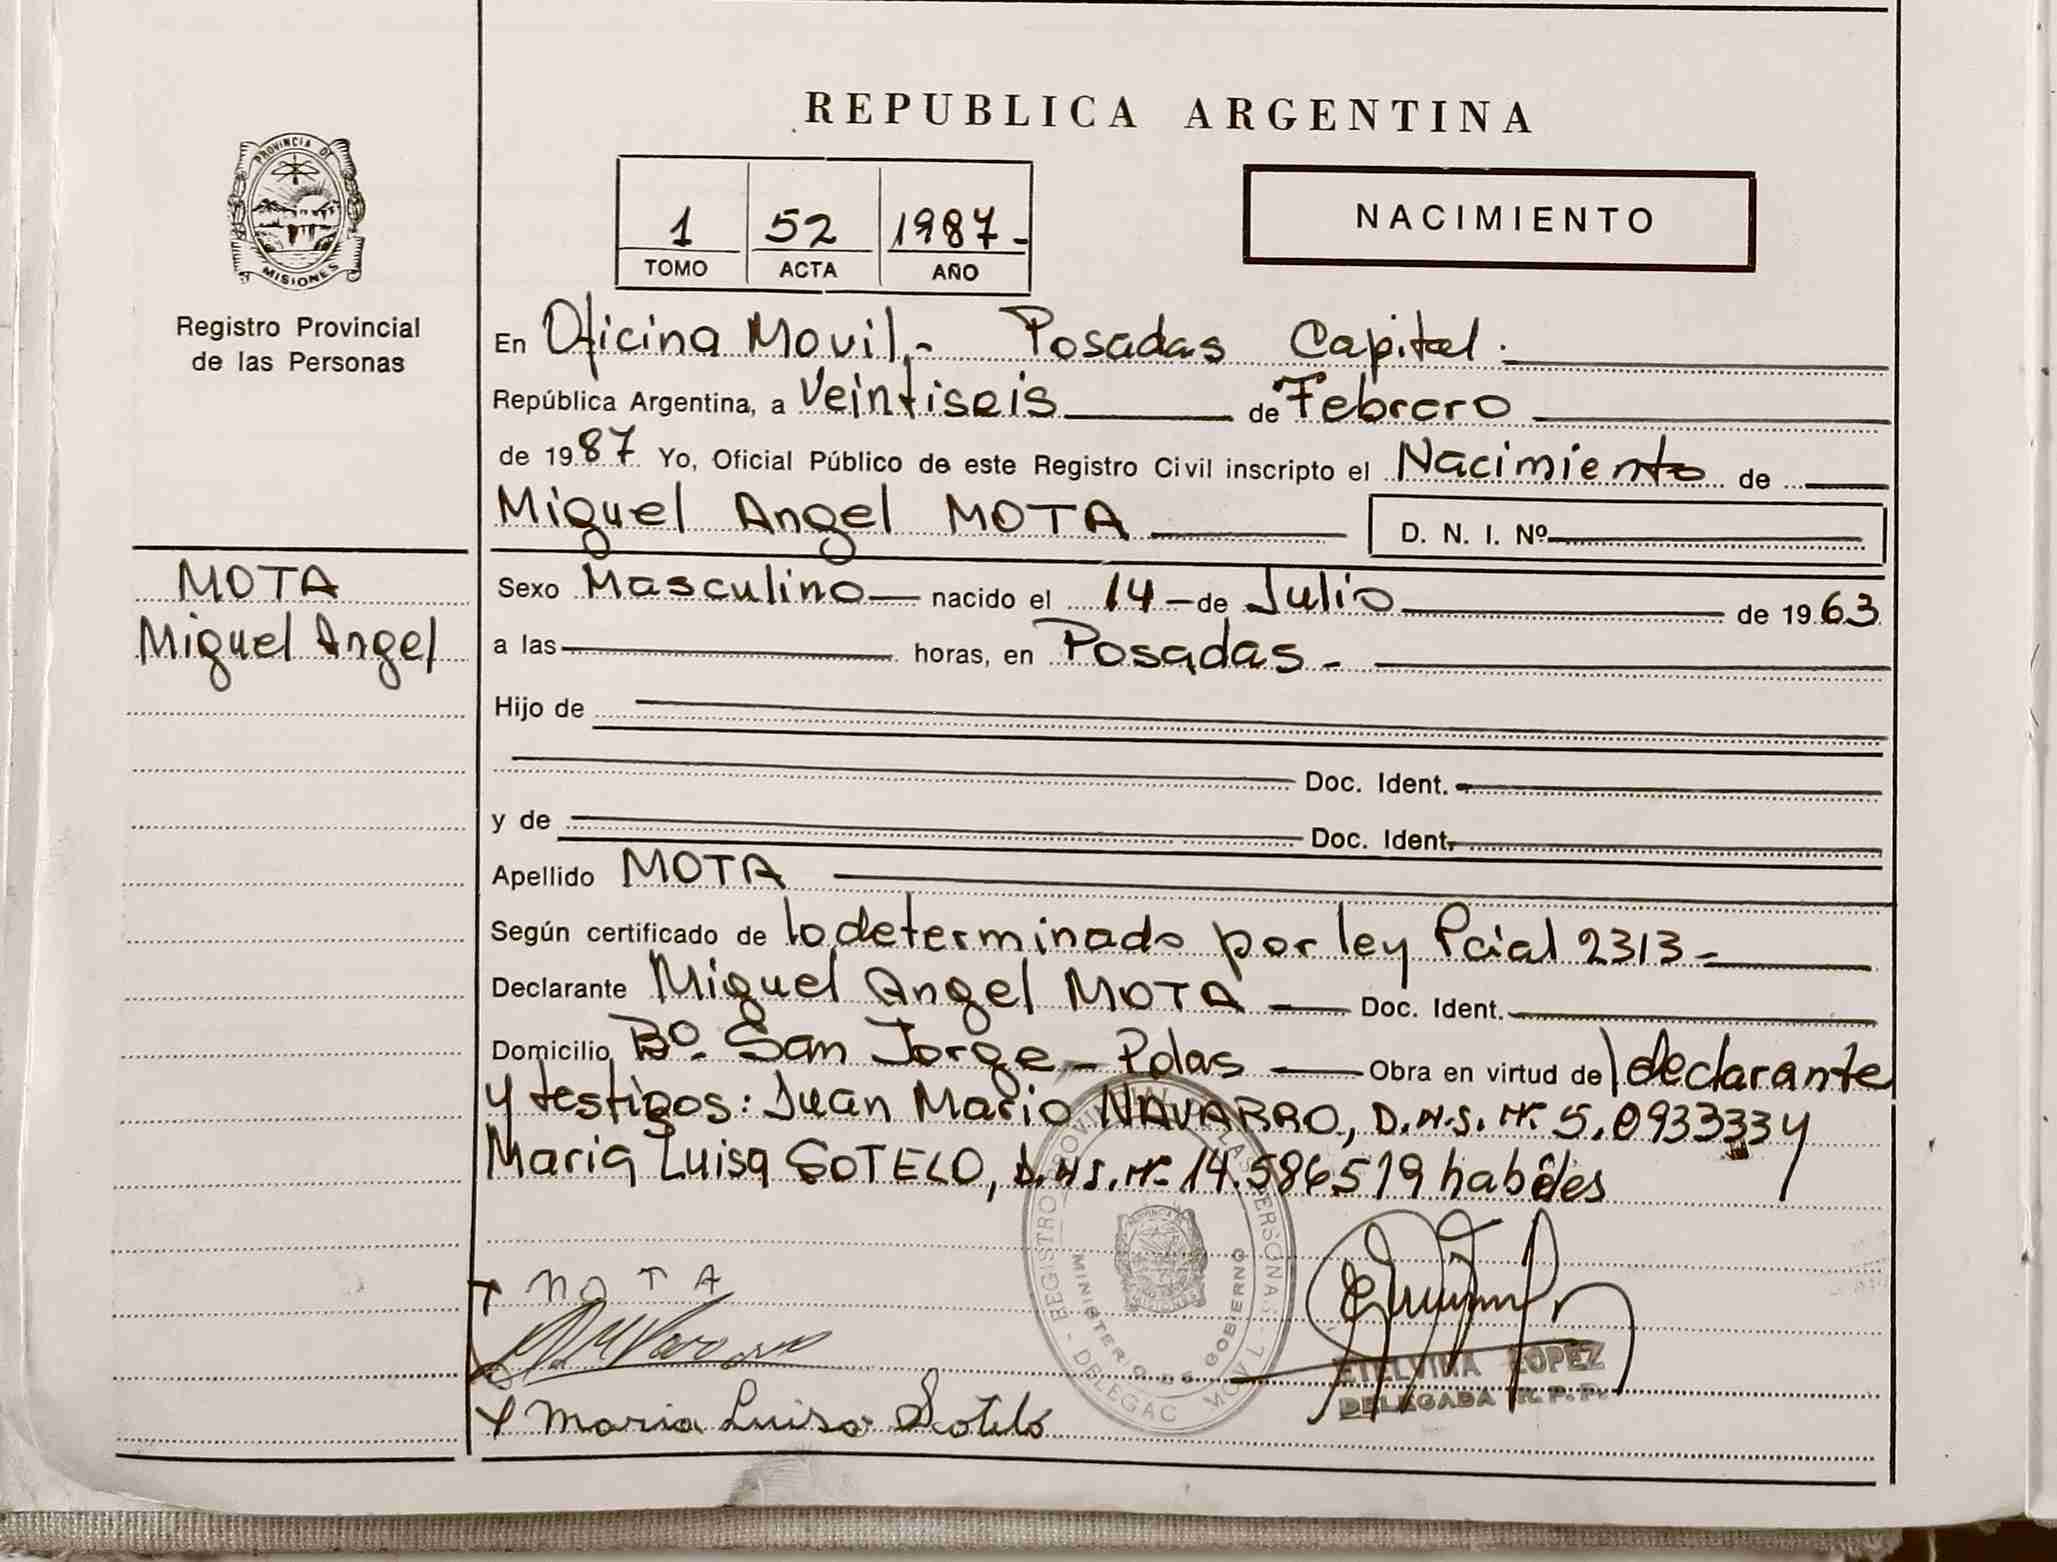 REPUBLICA ARGENTINA
PROVINCIA DE
MISIONES
Registro Provincial
de las Personas
1 52 1987-
TOMO ACTA AÑO
NACIMIENTO
En Oficina Movil.- Posadas Capital.
República Argentina, a Veintiseis de Febrero
de 1987 Yo, Oficial Público de este Registro Civil inscripto el Nacimiento de
Miguel Angel MOTA D. N. I. Nº
MOTA
Miguel Angel
Sexo Masculino nacido el 14 - de Julio de 1963
a las horas, en Posadas -
Hijo de
Doc. Ident.
y de Doc. Ident.
Apellido MOTA
Según certificado de lo determinado por ley Pcial 2313 -
Declarante Miguel Angel MOTA Doc. Ident.
Domicilio Bº. San Jorge - Pdas Obra en virtud de declarante
y testigos: Juan Mario NAVARRO, 5.093333 y
Maria Luisa SOTELO, 14.586519
REGISTRO PROVINCIAL DE LAS PERSONAS
MINISTERIO DE GOBIERNO
DELEGAC MOVIL
MOTA
Maria Luisa Sotelo
ETELVINA LOPEZ
DELEGADA R. P. P.